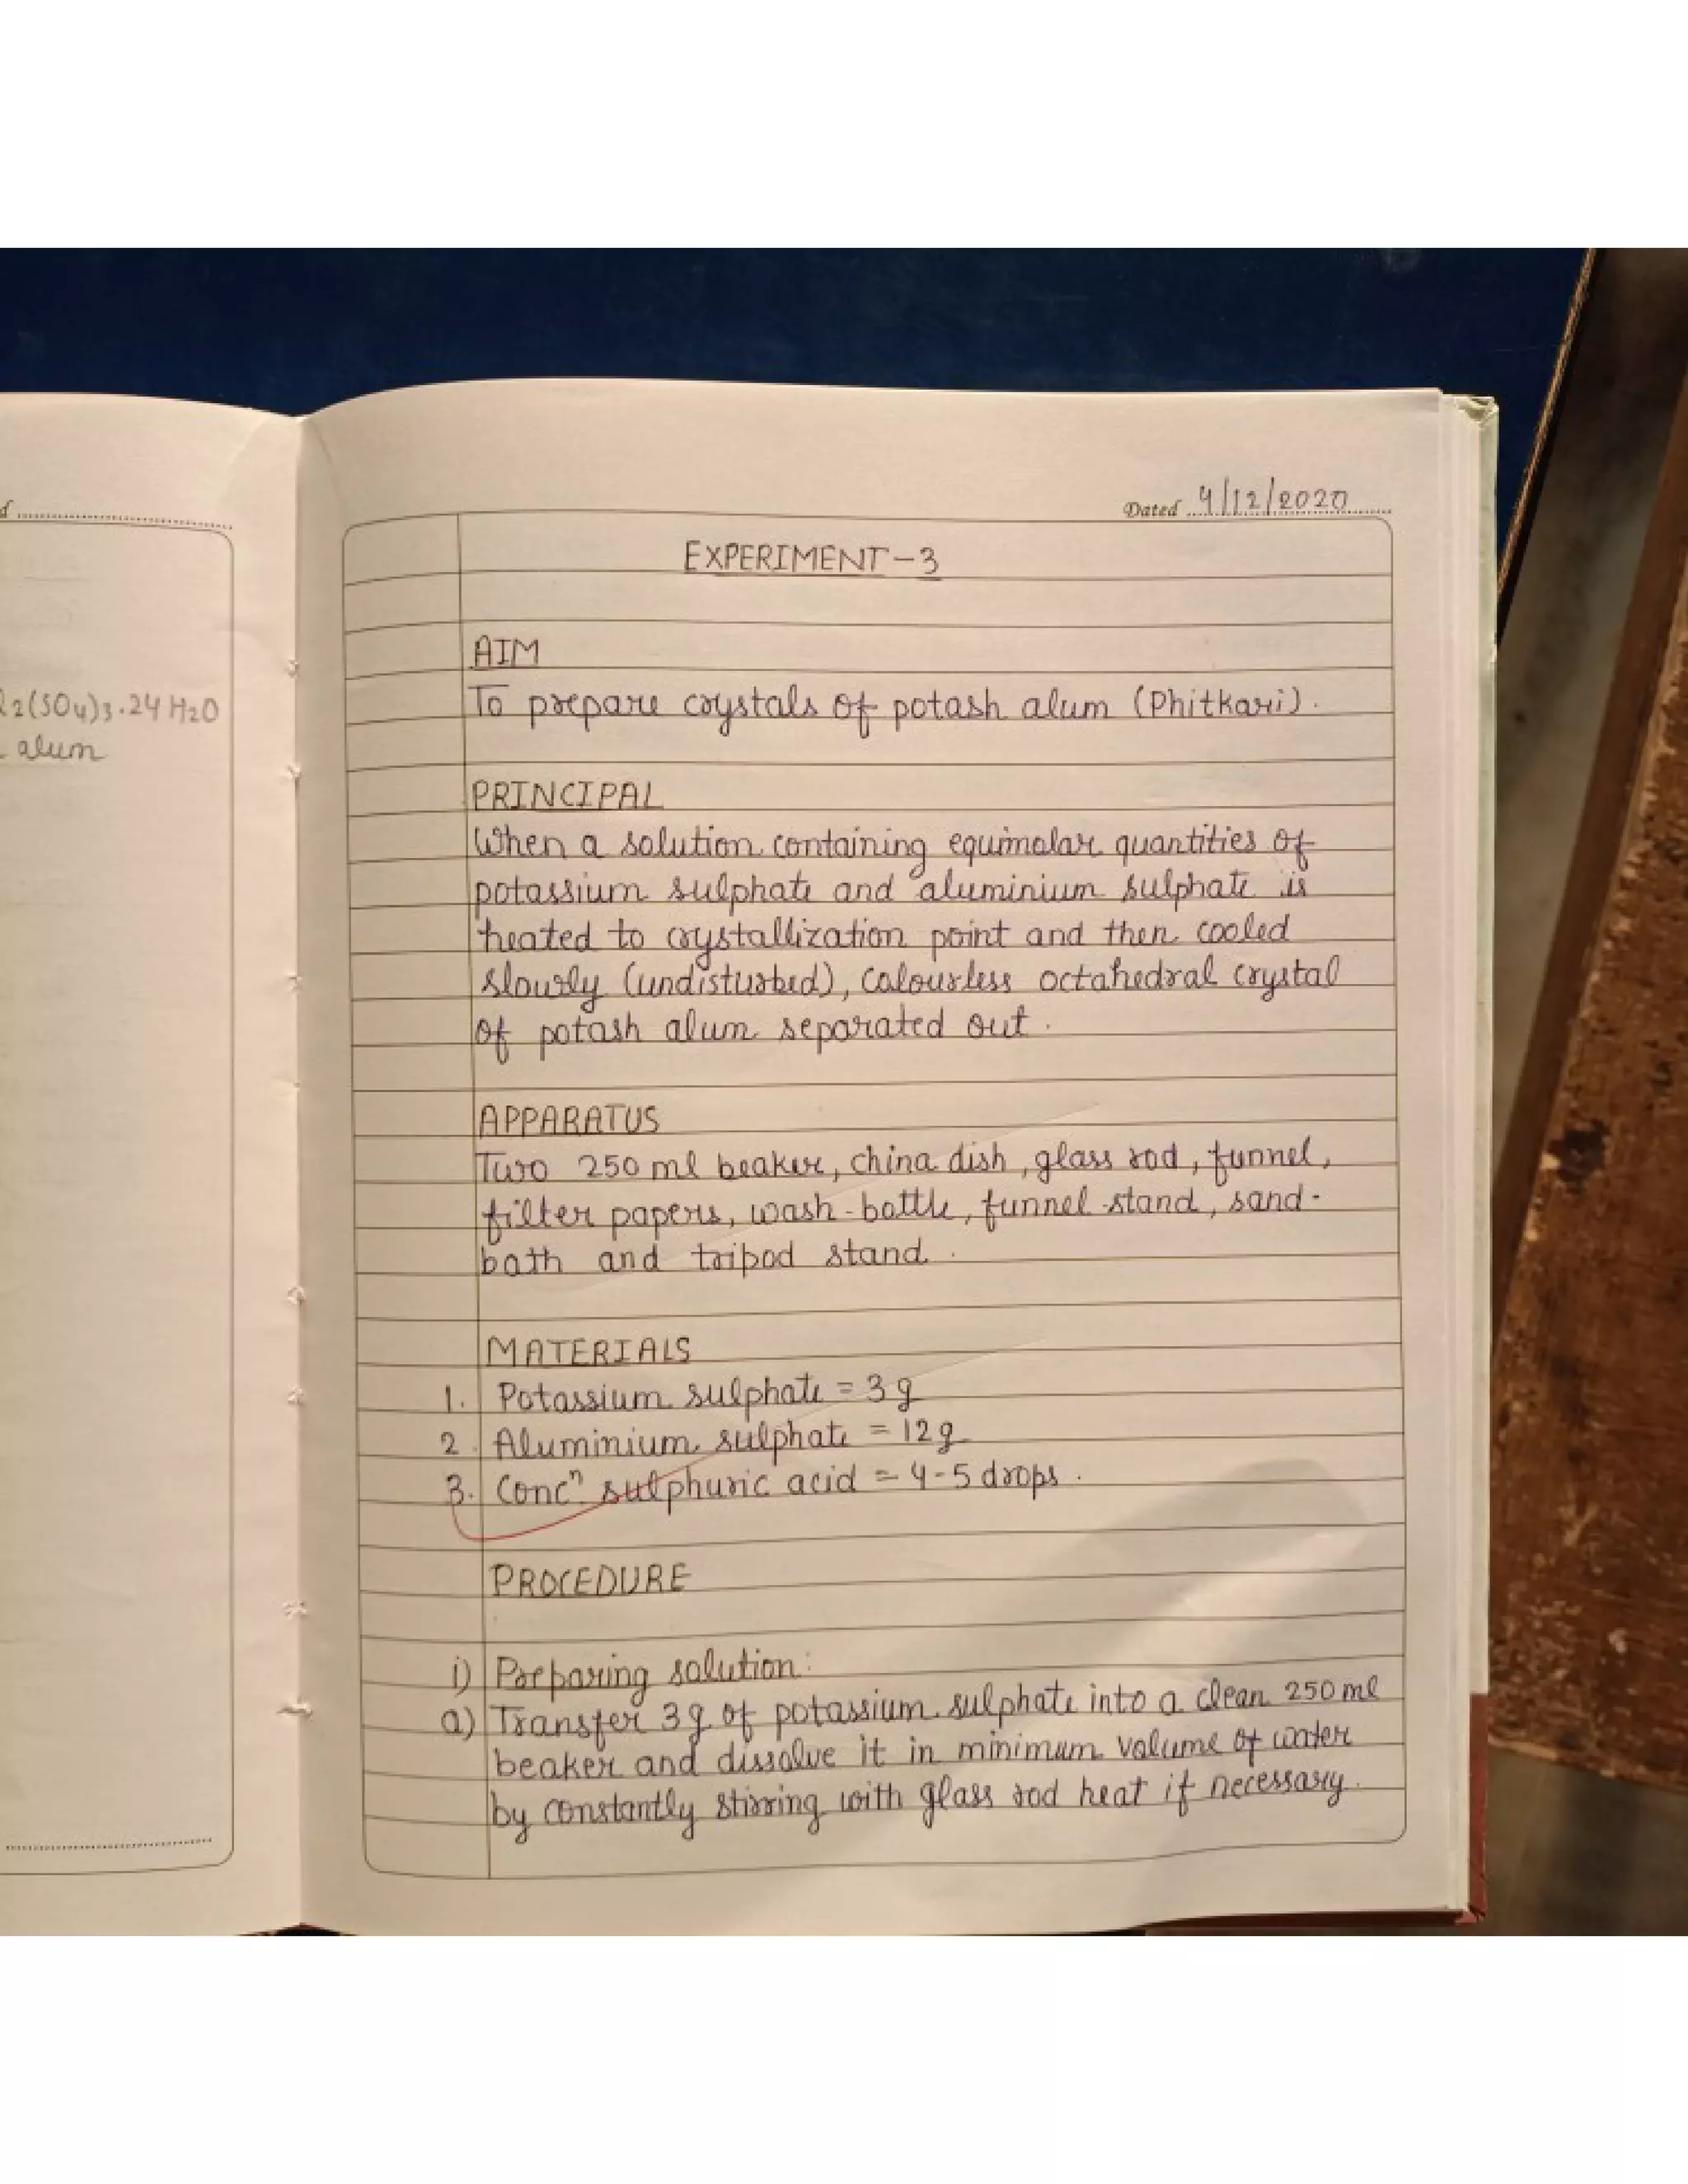 d
2(SO4)3.24H2O
alum
Dated 4/12/2020
EXPERIMENT-3
AIM
To prepare crystals of potash alum (Phitkari).
PRINCIPAL
When a solution containing equimolar quantities of
potassium sulphate and aluminium sulphate is
heated to crystallization point and then cooled
slowly (undisturbed), colourless octahedral crystal
of potash alum separated out.
APPARATUS
Two 250 ml beaker, china dish, glass rod, funnel,
filter papers, wash-bottle, funnel-stand, sand-
bath and tripod stand.
MATERIALS
1. Potassium sulphate = 3g
2. Aluminium sulphate = 12g
3. Concn. sulphuric acid = 4-5 drops.
PROCEDURE
i) Preparing solution:
a) Transfer 3g of potassium sulphate into a clean 250 ml
beaker and dissolve it in minimum volume of water
by constantly stirring with glass rod heat if necessary.